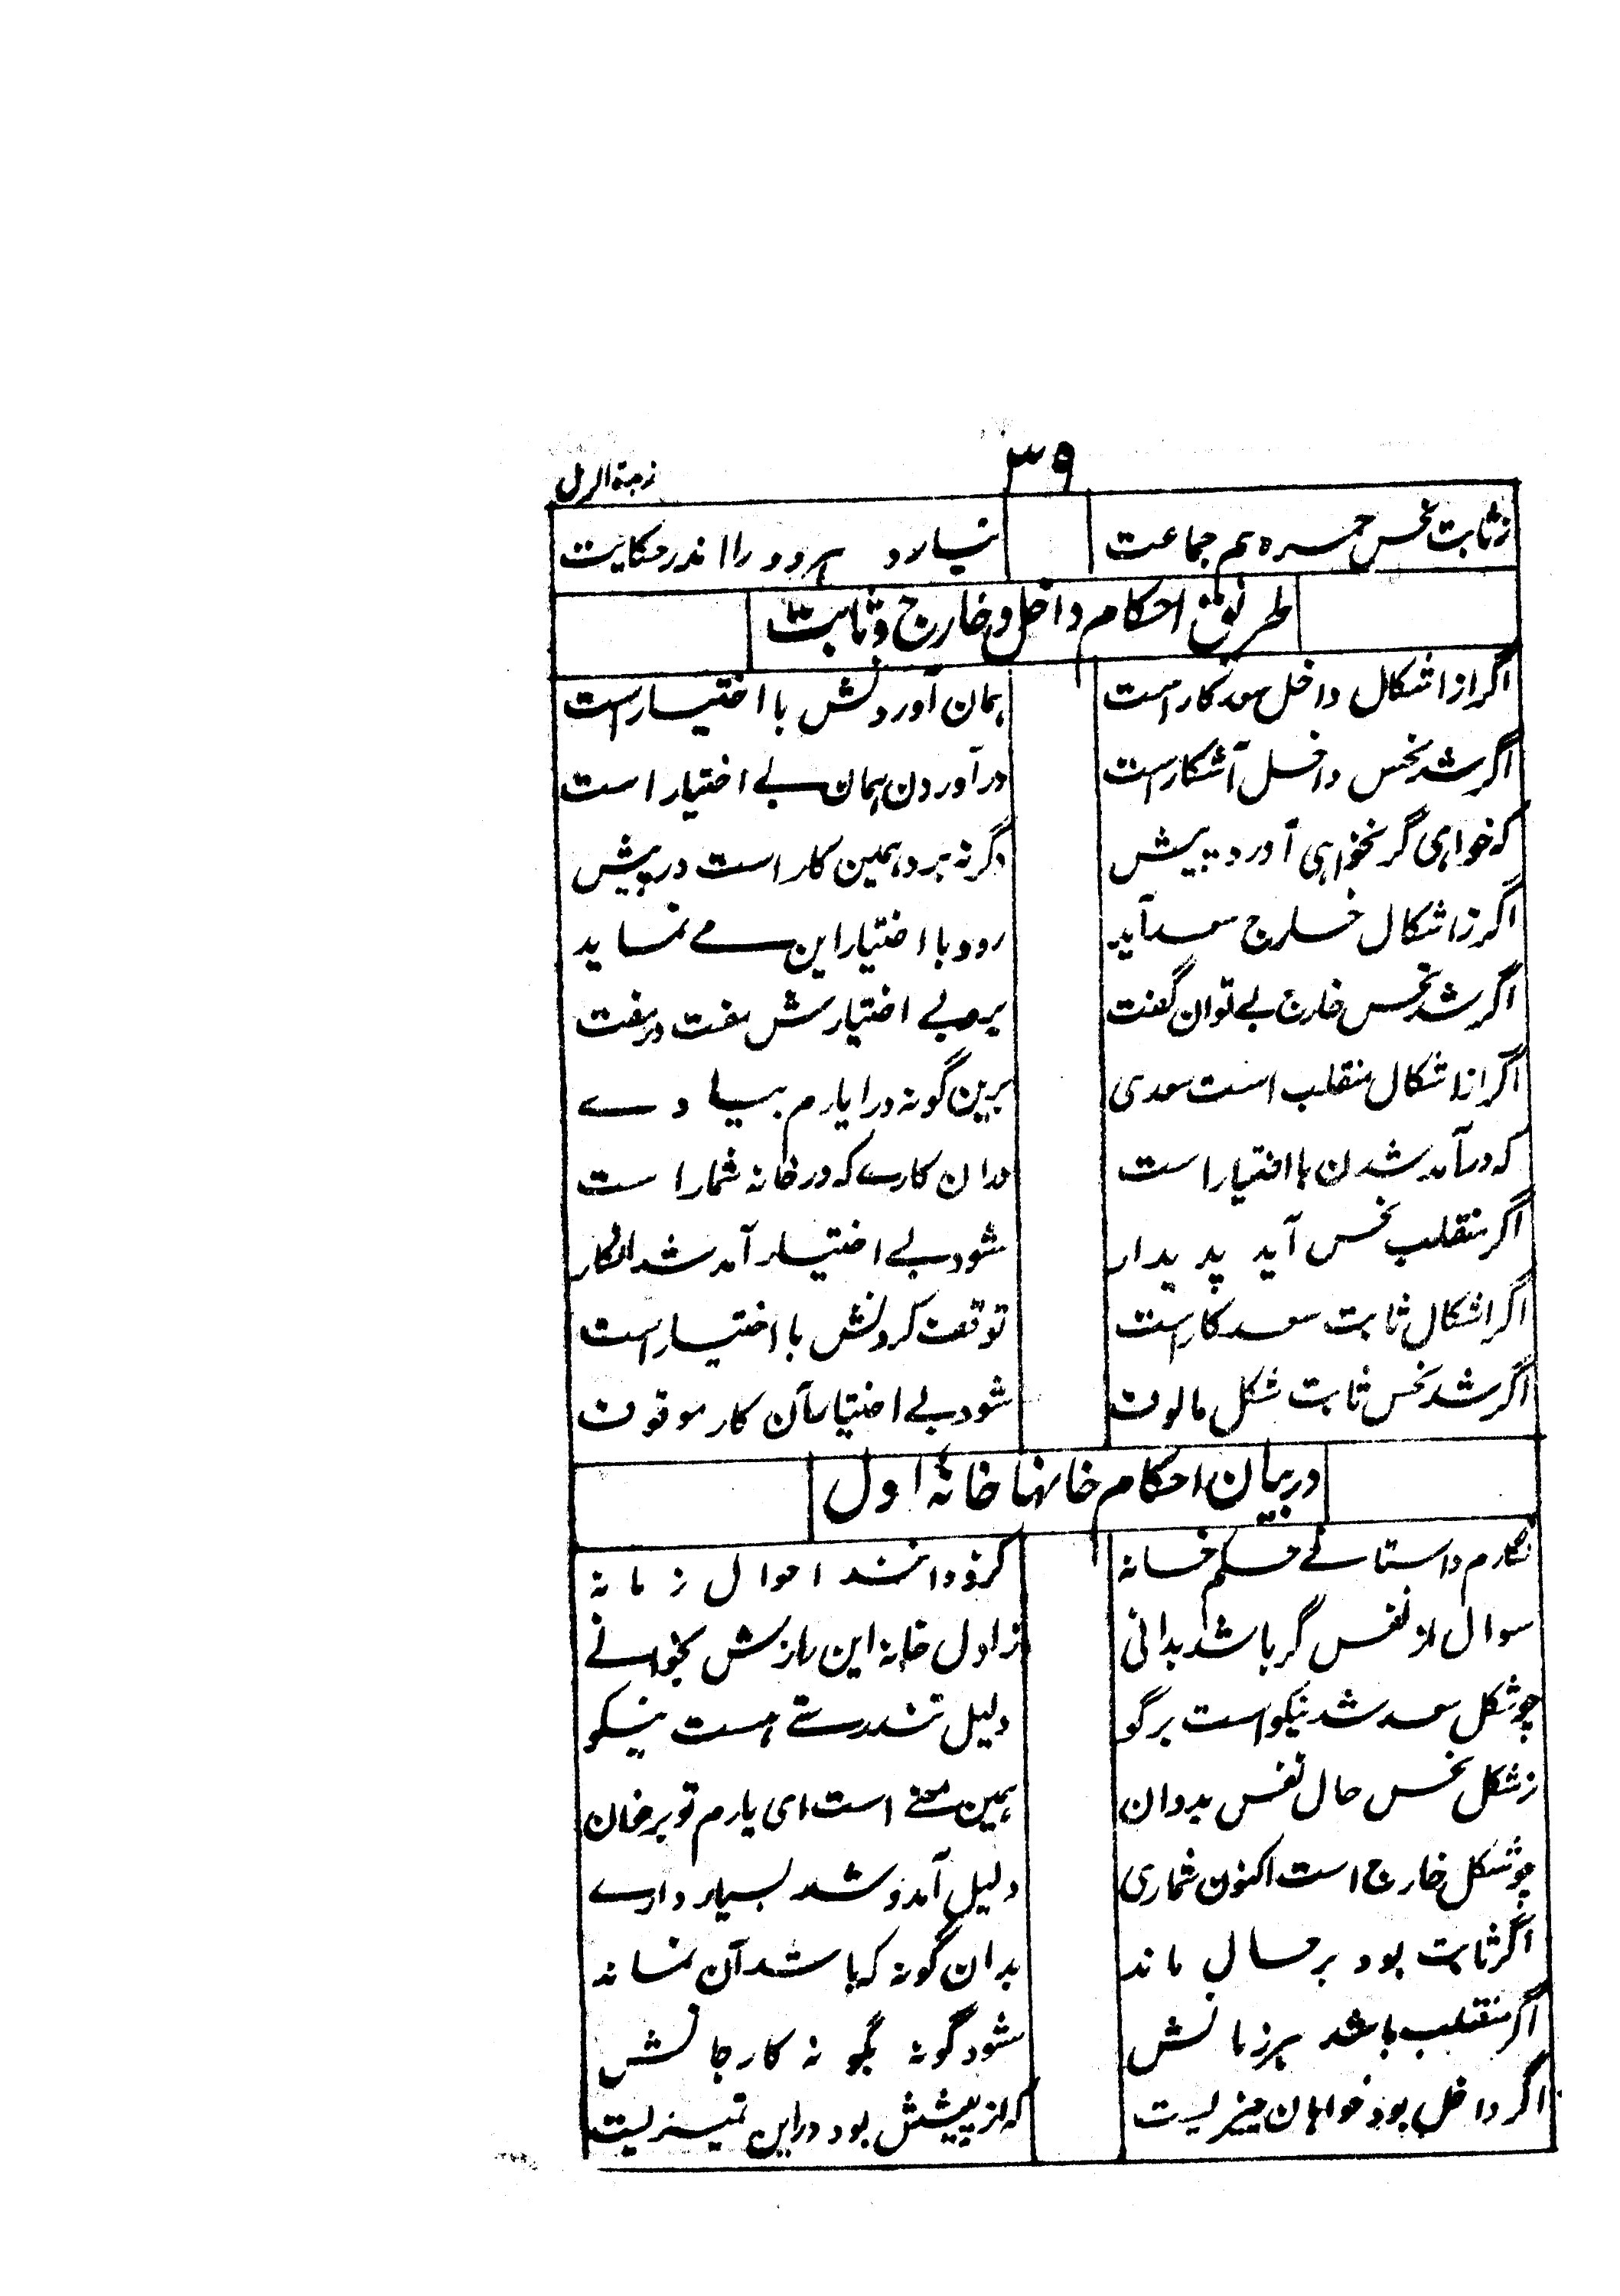 ۳۹
زبدة الرمل
ز ثابت نحس حمره هم جماعت نیارد برد را اندر حکایت
طریق احکام داخل و خارج و ثابت
اگر از اشکال داخل سعد کار است همان آوردنش با اختیار است
اگر شد نحس داخل آشکار است در آوردن همان بے اختیار است
که خواهی گر نخواهی آورد پیش دگر نه برد همین کار است در پیش
اگر ز اشکال خارج سعد آید رود با اختیار این مے نماید
اگر شد نحس خارج بے توان گفت بے اختیارش مفت در مفت
اگر از اشکال منقلب است سعدی برین گونه در ایارم بیادے
که در آمد شدن با اختیار است بدان کارے که در خانه شمار است
اگر منقلب نحس آید پدیدار شود بے اختیار آمد شد انکار
اگر اشکال ثابت سعد کار است توقف کردنش با اختیار است
اگر شد نحس ثابت شکل مالوف شود بے اختیار آن کار موقوف
در بیان احکام خانها خانهٔ اول
نگارم داستانے حکم خانه کزو دانند احوال زمانه
سوال از نفس گر باشد بدانی ز اول خانه این رازش بخوانے
چو شکل سعد شد نیکو است برگو دلیل تندرستے هست نیکو
ز شکل نحس حال نفس بد دان همین معنے است ای یارم تو بر خوان
چو شکل خارج است اکنون شماری دلیل آمد و شد بسیار دارے
اگر ثابت بود بر حال ماند بدان گونه که باشد آن نماند
اگر منقلب باشد بر زمانش شود گونه بگونه کار جانش
اگر داخل بود خواهان چیزیست که از پیشش بود در این تمیزیست